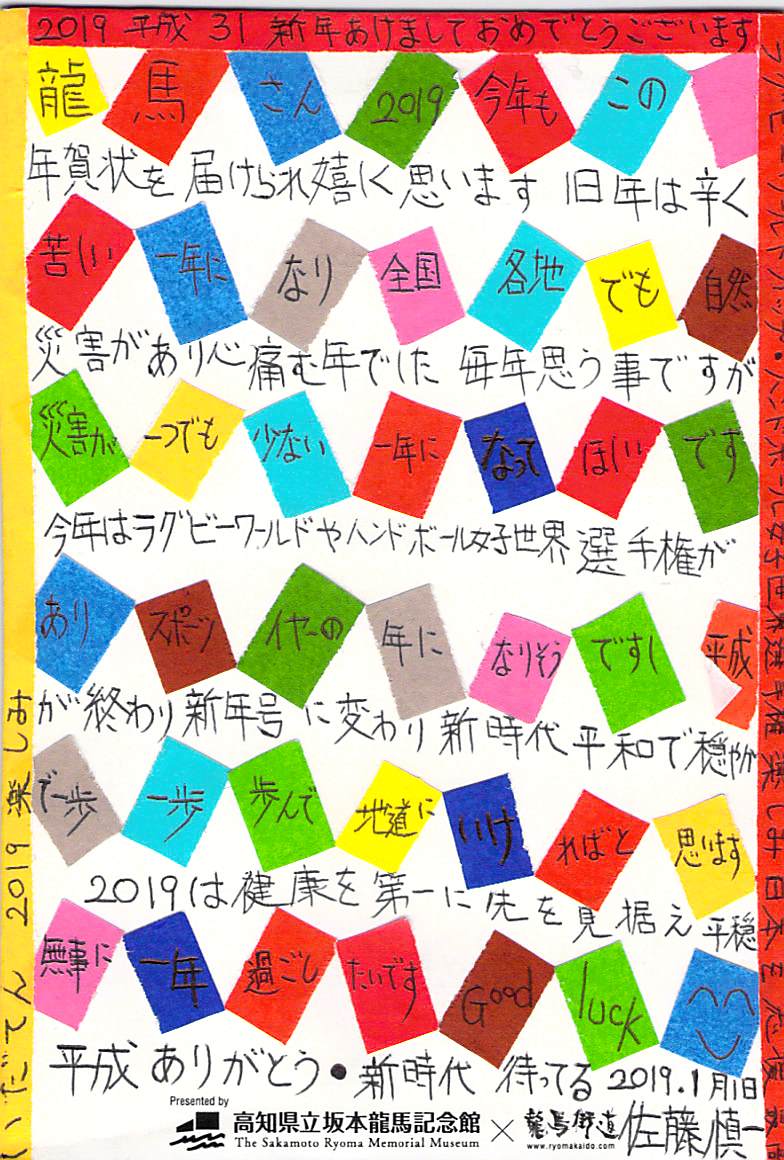 2019 平成 31 新年あけましておめでとうございます
龍 馬 さん 2019 今年も この
年賀状を 届けられ嬉しく思います 旧年は辛く
苦しい 一年に なり 全国 各地 でも 自然
災害があり心痛む年でした 毎年思う事ですが
災害が 一つでも 少ない 一年に なって ほしい です
今年はラグビーワールドやハンドボール女子世界選手権が
あり スポーツ イヤーの 年に なりそう ですし 平成
が終わり新年号に変わり新時代平和で穏やか
で一歩 一歩 歩んで 地道に いけ ればと 思います
2019は健康を第一に先を見据え平穏
無事に 一年 過ごし たいです Good luck
平成ありがとう・新時代 待ってる 2019.1月1日
佐藤慎一
いだてん 2019 楽しみ
Presented by
高知県立坂本龍馬記念館
The Sakamoto Ryoma Memorial Museum
×
龍馬街道
www.ryomakaido.com